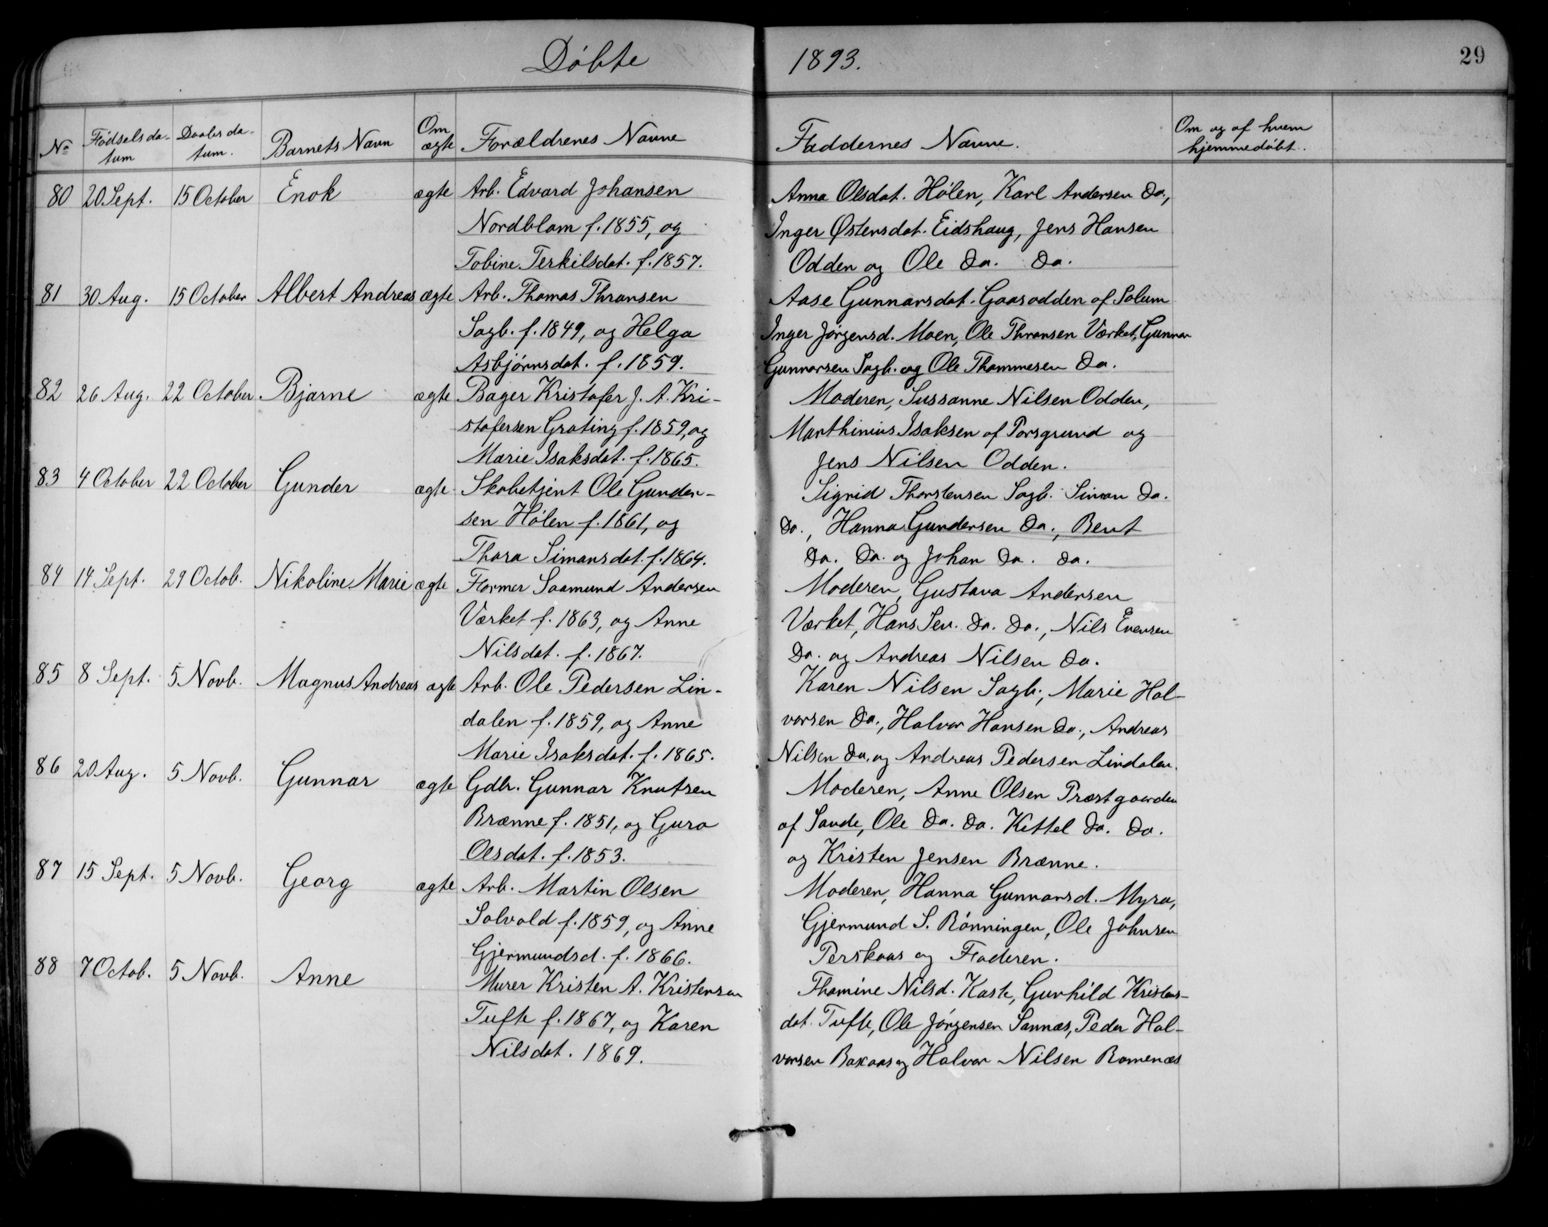 Döbte 1893. 29
No Födselsdatum Daabsdatum. Barnets Navn Om ægte Forældrenes Navne Faddernes Navne. Om og af hvem hjemmedöbt.
80 20 Sept. 15 October Enok ægte Arb. Edvard Johansen Anna Olsdat. Hölen, Karl Andersen do.,
Nordblom f. 1855, og Inger Østensdat. Eidshaug, Jens Hansen
Tobine Terkilsdat. f. 1857. Odden og Ole do. do.
81 30 Aug. 15 October Albert Andreas ægte Arb. Thomas Thronsen Aase Gunnarsdat. Gaasodden af Solum
Sagb. f. 1849, og Helga Inger Jörgensd. Moen, Ole Thronsen Værket, Gunnar
Asbjörnsdat. f. 1859. Gunnarsen Sagb. og Ole Thommesen do.
82 26 Aug. 22 October Bjarne ægte Bager Kristofer J. A. Kri- Moderen, Sussanne Nilsen Odden,
stofersen Grating f. 1859, og Marthinius Isaksen af Porsgrund og
Marie Isaksdat. f. 1865. Jens Nilsen Odden.
83 4 October 22 October Gunder ægte Skobetjent Ole Gunder- Sigrid Thorstensen Sagb. Simon do.
sen Hölen f. 1861, og do., Hanna Gundersen do., Bent
Thora Simonsdat. f. 1864. do. do. og Johan do. do.
84 14 Sept. 29 Octob. Nikoline Marie ægte Former Saamund Andersen Moderen, Gustava Andersen
Værket f. 1863, og Anne Værket, Hans Sen. do. do., Nils Evensen
Nilsdat. f. 1867. do. og Andreas Nilsen do.
85 8 Sept. 5 Novb. Magnus Andreas ægte Arb. Ole Pedersen Lin- Karen Nilsen Sagb., Marie Hal-
dalen f. 1859, og Anne vorsen do., Halvor Hansen do., Andreas
Marie Isaksdat. f. 1865. Nilsen do. og Andreas Pedersen Lindalen.
86 20 Aug. 5 Novb. Gunnar ægte Gdbr. Gunnar Knutsen Moderen, Anne Olsen Præstgaarden
Brænne f. 1851, og Guro af Sande, Ole do. do. Kittel do. do.
Olsdat. f. 1853. og Kristen Jensen Brænne.
87 15 Sept. 5 Novb. Georg ægte Arb. Martin Olsen Moderen, Hanna Gunnarsd. Myra,
Solvold f. 1859, og Anne Gjermund S. Rönningen, Ole Johnsen
Gjermundsd. f. 1866. Perskaas og Faderen.
88 7 Octob. 5 Novb. Anne Murer Kristen A. Kristensen Thomine Nilsd. Kaste, Gunhild Kristens-
Tufte f. 1867, og Karen dat. Tufte, Ole Jörgensen Sannæs, Peder Hal-
Nilsdat. 1869. vorsen Baxaas og Halvor Nilsen Romenæs